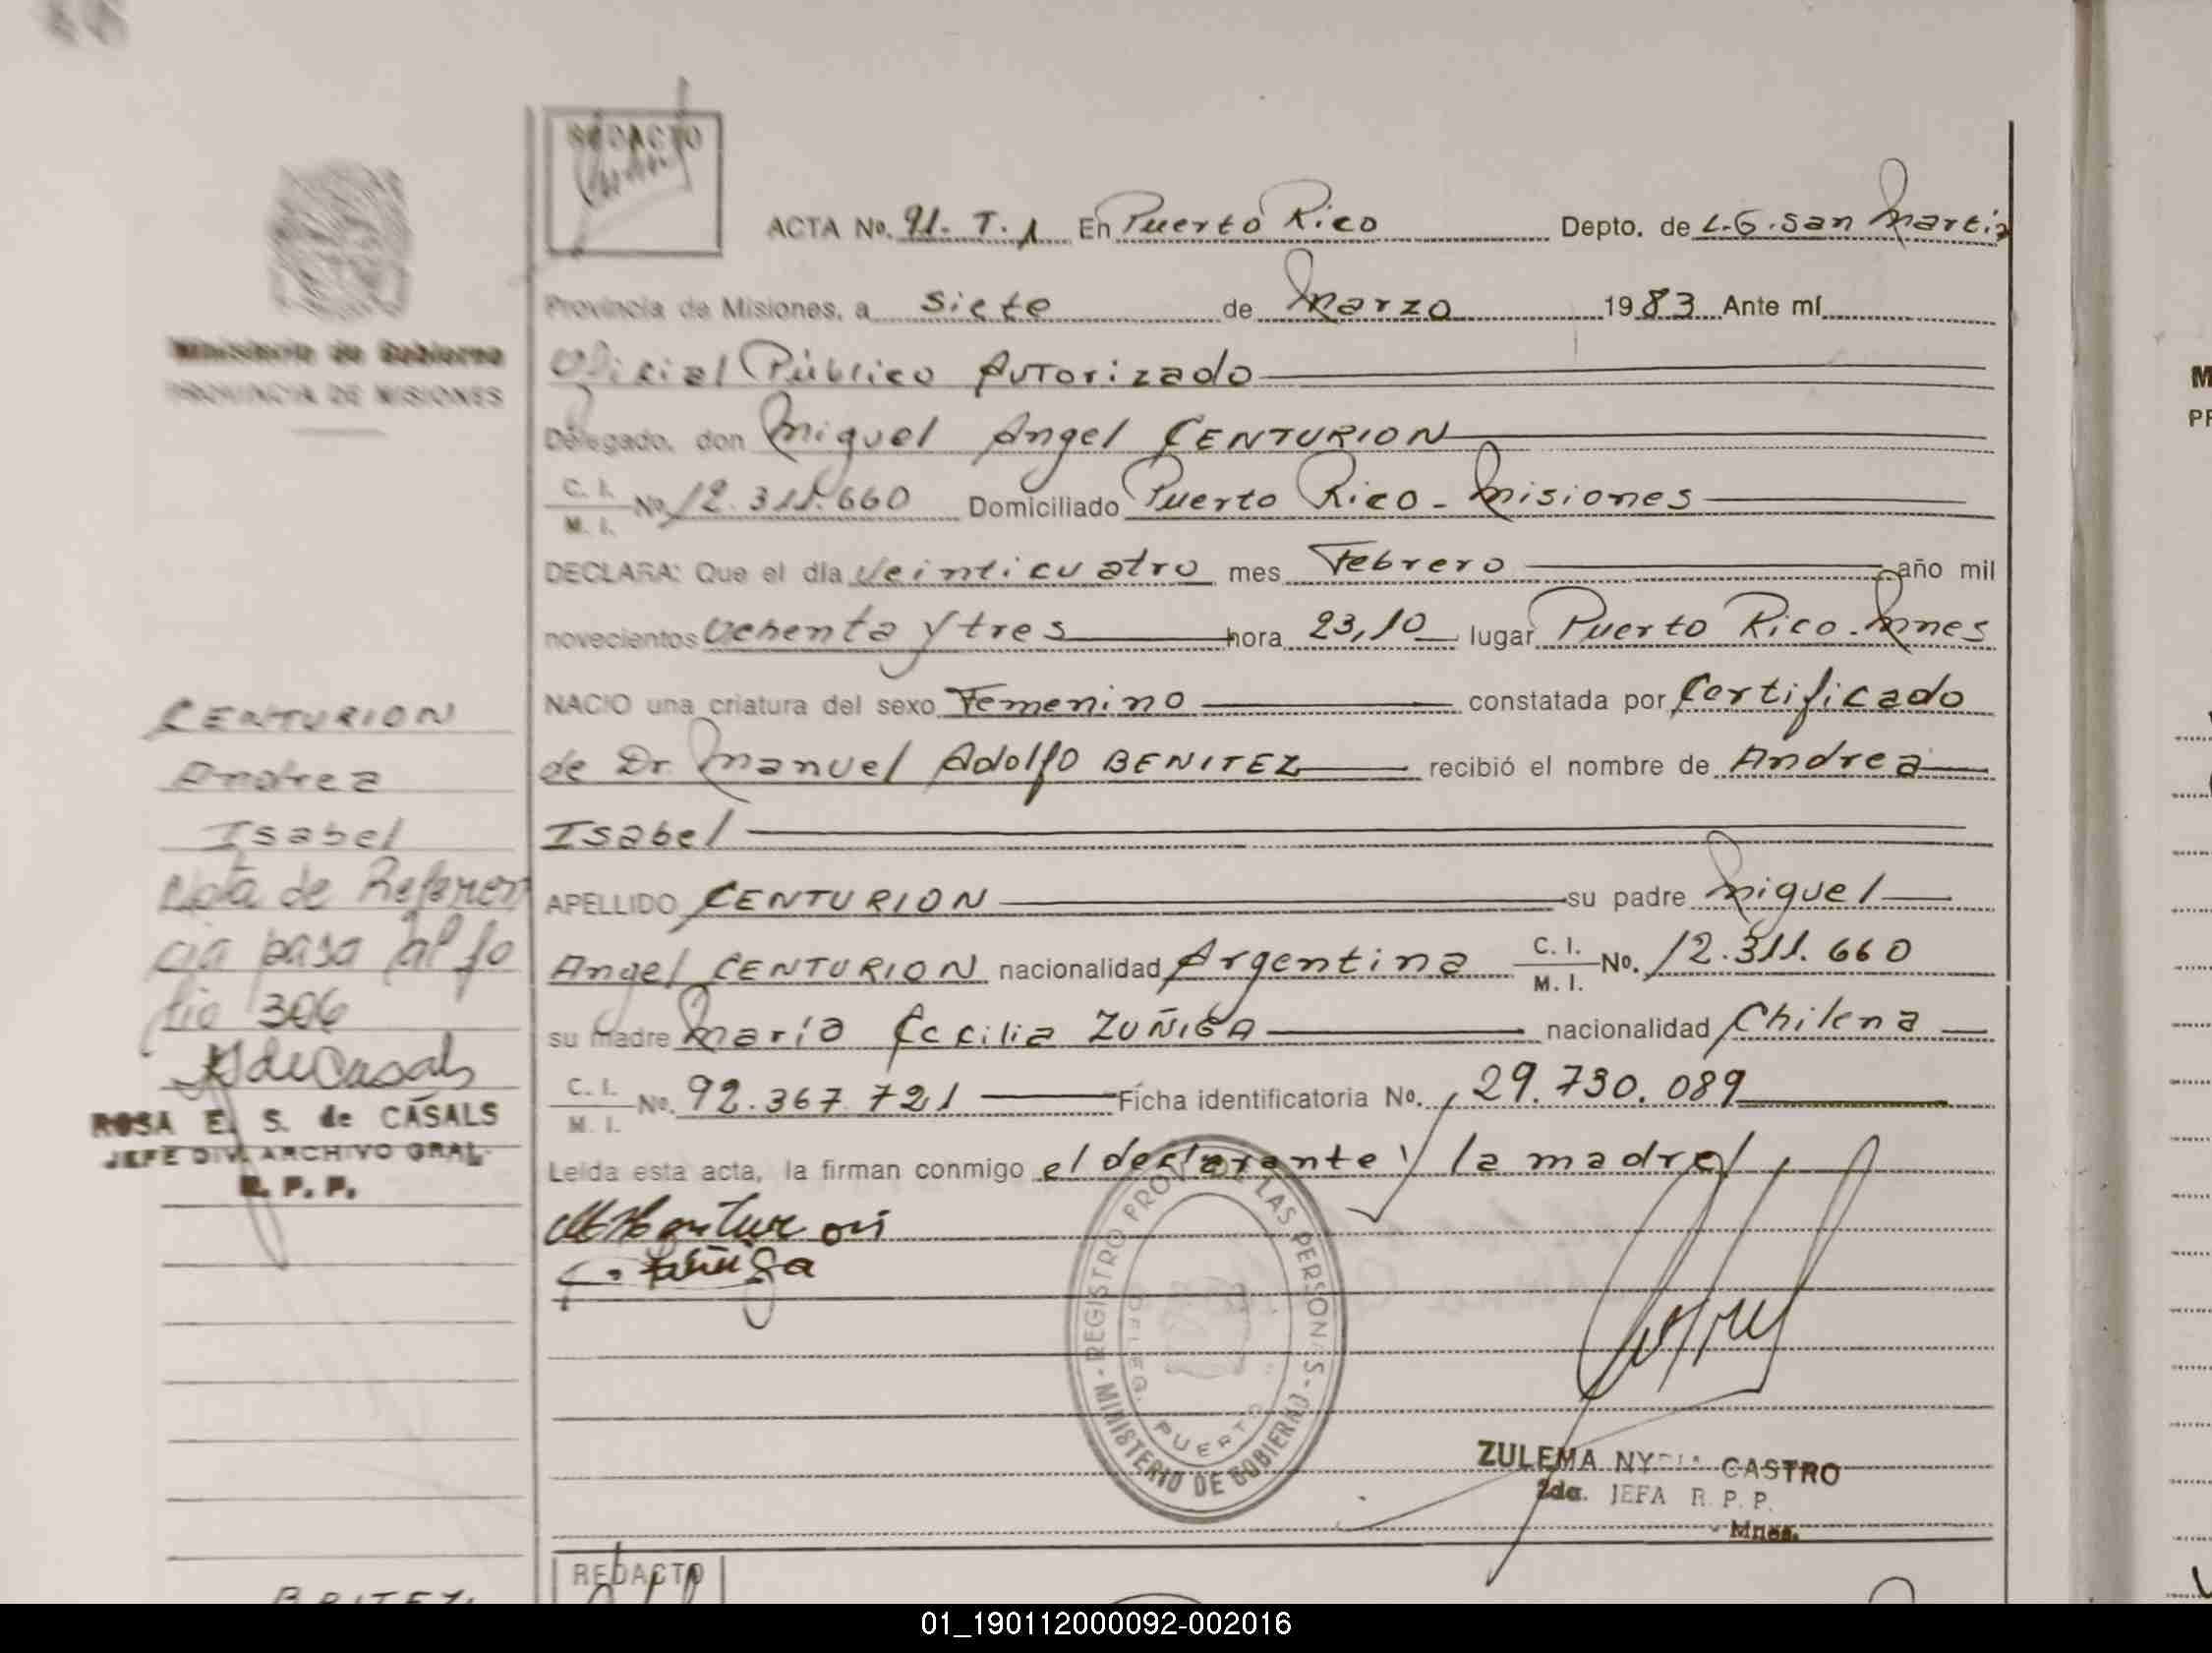 REDACTO
ACTA No. 91. T. 1 En Puerto Rico Depto. de L.G. San Martin
Provincia de Misiones, a siete de Marzo 1983 Ante mí
Oficial Público Autorizado
Delegado, don Miguel Angel CENTURION
C. I. M. I. No. 12.311.660 Domiciliado Puerto Rico - Misiones
DECLARA: Que el día veinticuatro mes Febrero año mil
novecientos ochenta y tres hora 23,10 lugar Puerto Rico. Mnes
NACIO una criatura del sexo Femenino constatada por Certificado
de Dr. Manuel Adolfo BENITEZ recibió el nombre de Andrea
Isabel
APELLIDO CENTURION su padre Miguel
Angel CENTURION nacionalidad Argentina C. I. M. I. No. 12.311.660
su madre María Cecilia ZUÑIGA nacionalidad Chilena
C. I. M. I. No. 92.367.721 Ficha identificatoria No. 29.730.089
Leída esta acta, la firman conmigo el declarante y la madre
C. Zúñiga
REGISTRO PROV. LAS PERSONAS - MINISTERIO DE GOBIERNO -
DELEG. PUERTO
ZULEMA CASTRO
2da. JEFA R. P. P.
Mnes.
Ministerio de Gobierno
PROVINCIA DE MISIONES
CENTURION
Andrea
Isabel
Nota de Referen
cia pasa al fo
lio 306
ROSA E. S. de CASALS
JEFE DIV. ARCHIVO GRAL.
R. P. P.
REDACTO
M
PR
01_190112000092-002016